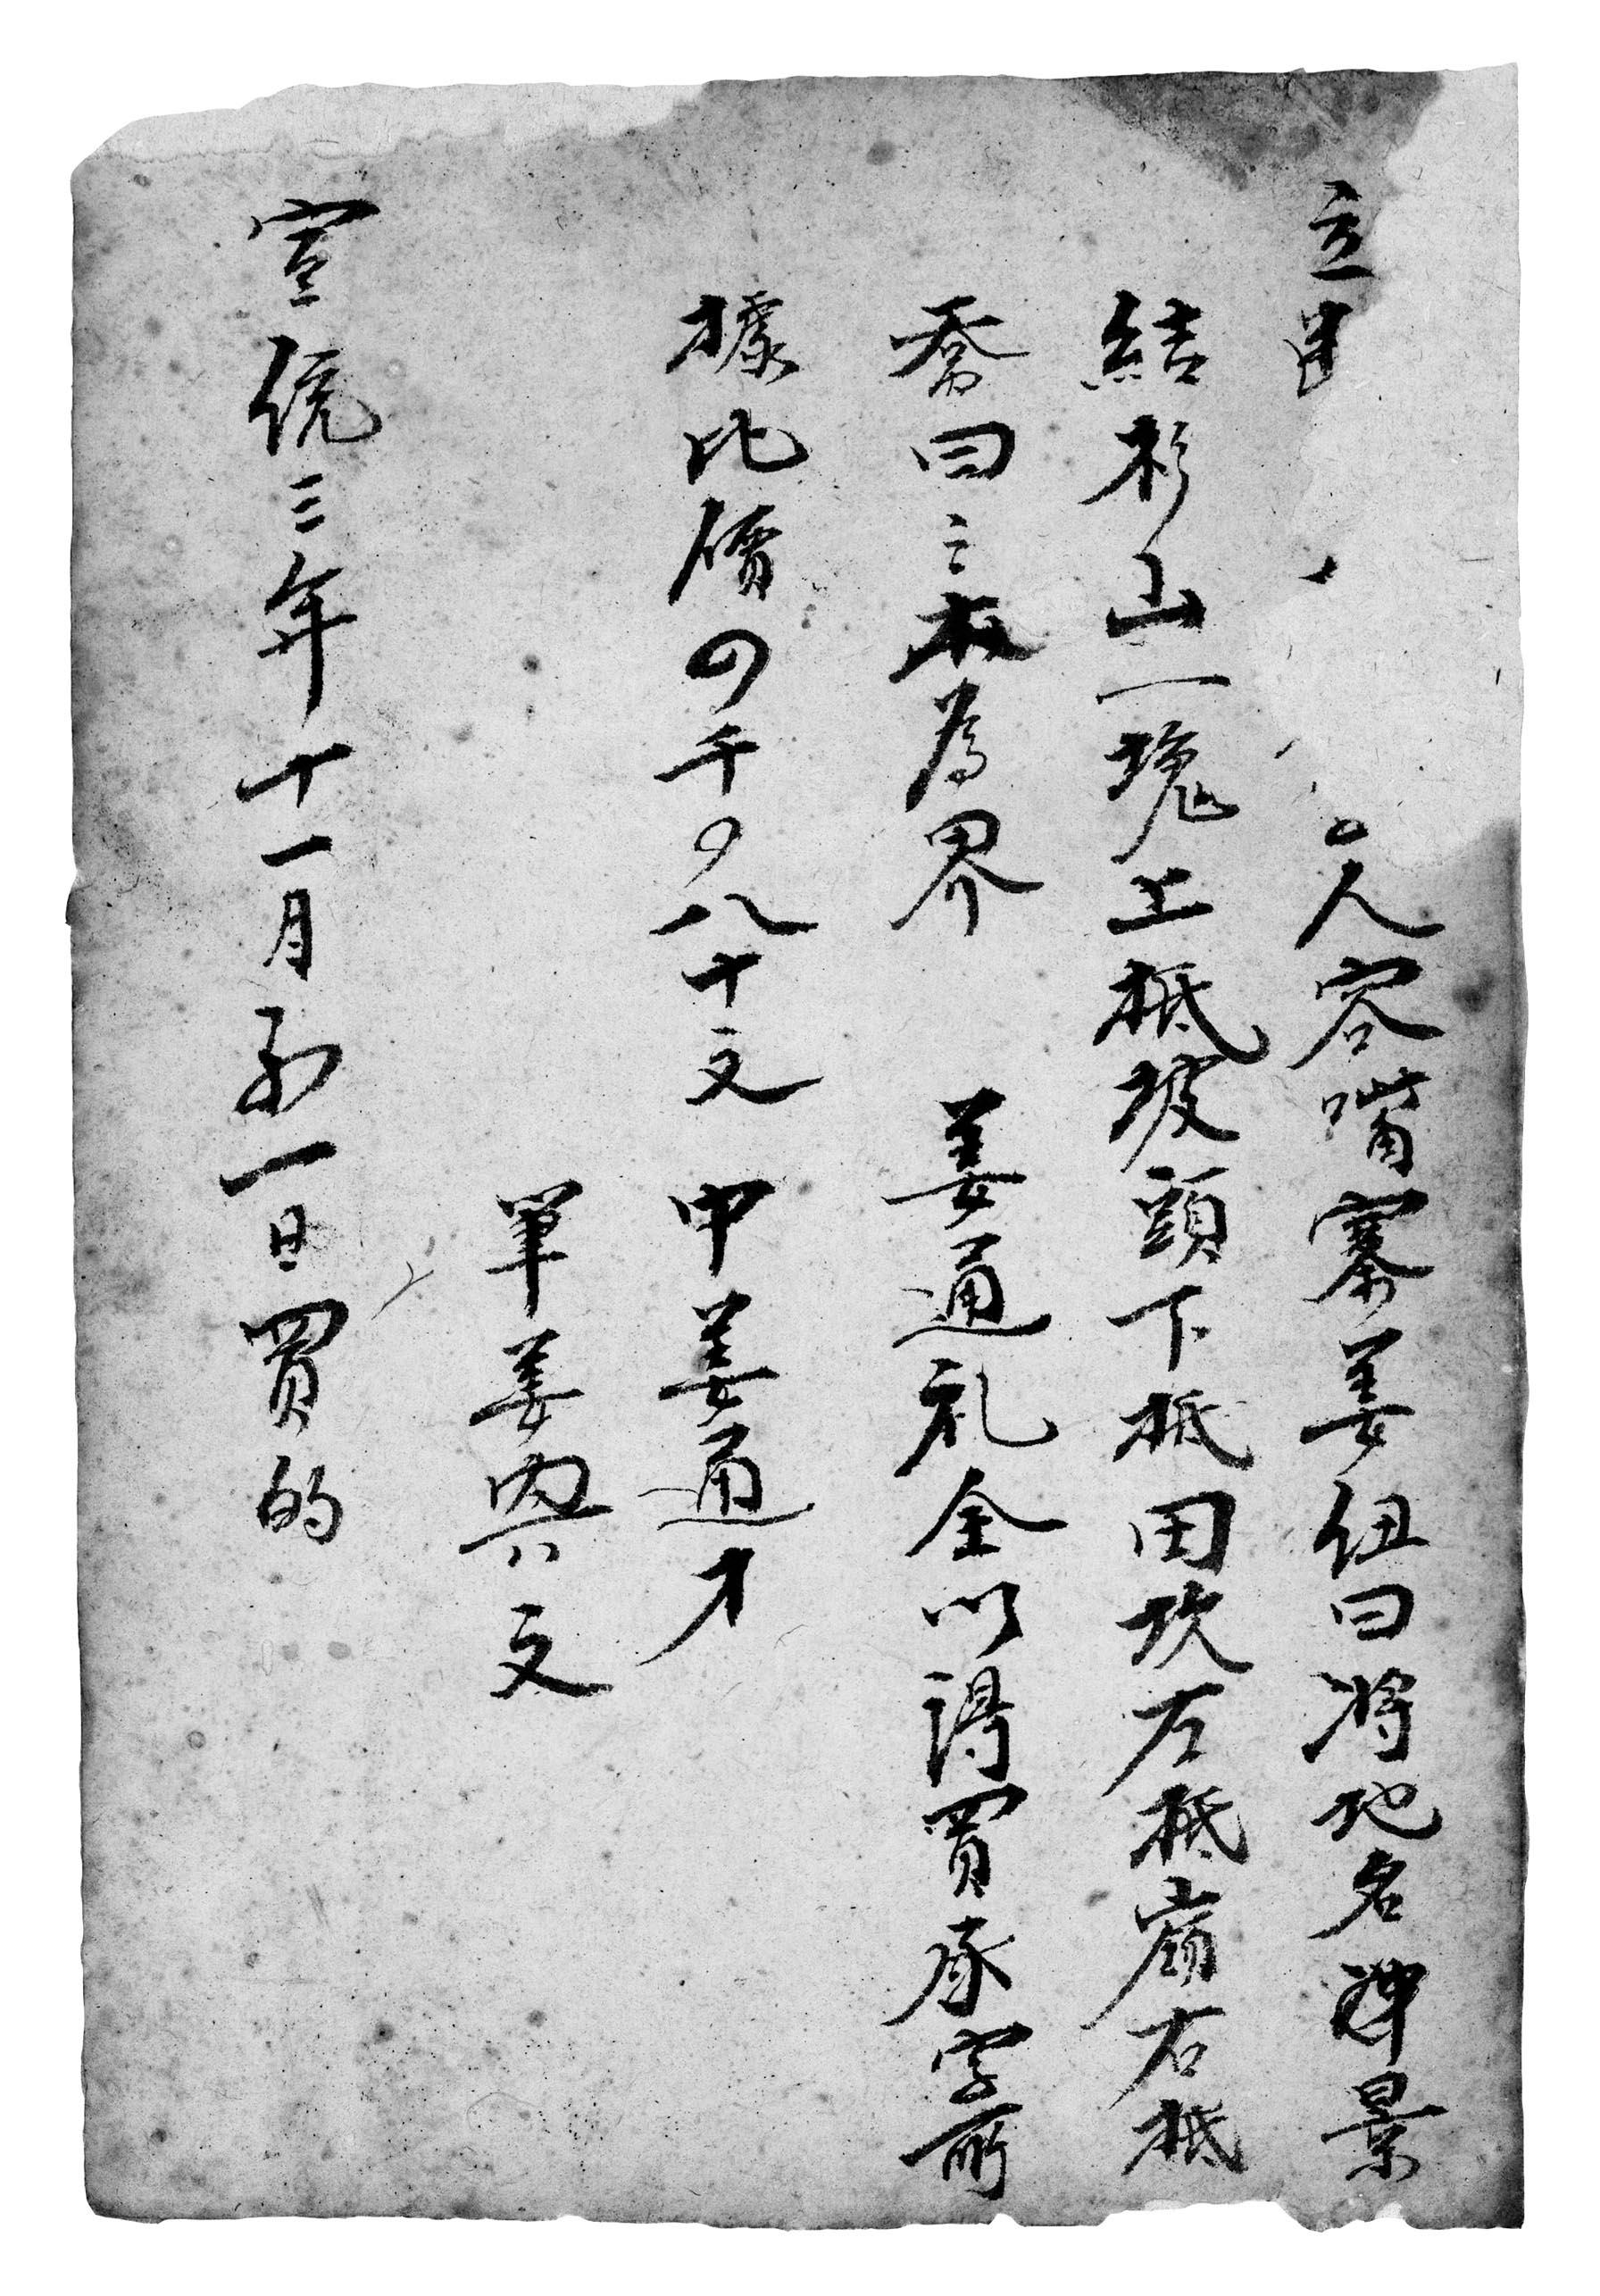 立
人容嘴寨姜纽曰将地名禅景
結杉山一塊上抵坡頭下抵田坎左抵嶺右抵
喬曰之木為界　姜通礼全以得買承字前
據比價四千〇八十文　中姜通才
单姜興文
宣統三年十一月初一日買的